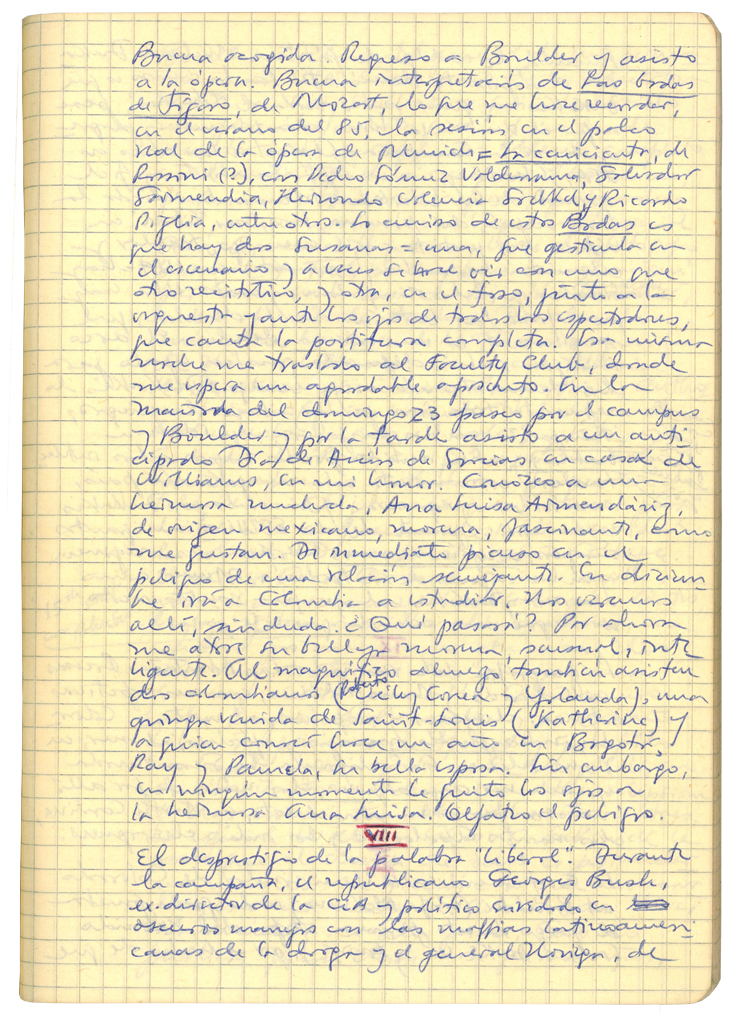 Buena acogida. Regreso a Boulder y asisto
a la ópera. Buena interpretación de Las bodas
de Fígaro, de Mozart, lo que me hace recordar,
en el verano del 85, la sesión en el palco
real de la ópera de Munich = La cenicienta, de
Rossini (?), con Pedro Gómez Valderrama, Salvador
Garmendia, Fernando Valencia Goelkel y Ricardo
Piglia, entre otros. Lo curioso de estas Bodas es
que hay dos Susanas = una, que gesticula en
el escenario y a veces se hace oír con uno que
otro recitativo, y otra, en el foso, junto a la
orquesta y ante los ojos de todos los espectadores,
que canta la partitura completa. Esa misma
noche me traslado al Faculty Club, donde
me espera un agradable aposento. En la
mañana del domingo 23 paseo por el campus
y Boulder y por la tarde asisto a un anti-
cipado Día de Acción de Gracias en casa de
Williams, en mi honor. Conozco a una
hermosa muchacha, Ana Luisa Armendáriz,
de origen mexicano, morena, fascinante, como
me gustan. De inmediato pienso en el
peligro de una relación semejante. En diciem-
bre irá a Colombia a estudiar. Nos veremos
allí, sin duda. ¿Qué pasará? Por ahora
me atrae su belleza morena, sensual, inte-
ligente. Al magnífico almuerzo también asisten
dos colombianos ( Correa y Yolanda), una
gringa venida de Saint-Louis (Katherine) y
a quien conocí hace un año en Bogotá,
Ray y Pamela, su bella esposa. Sin embargo,
en ningún momento le quito los ojos a
la hermosa Ana Luisa. Olfateo el peligro.
VIII
El desprestigio de la palabra "liberal". Durante
la campaña, el republicano Georges Bush,
ex-director de la CIA y político enredado en
oscuros manejos con las maffias latinoameri-
canas de la droga y el general Noriega, de